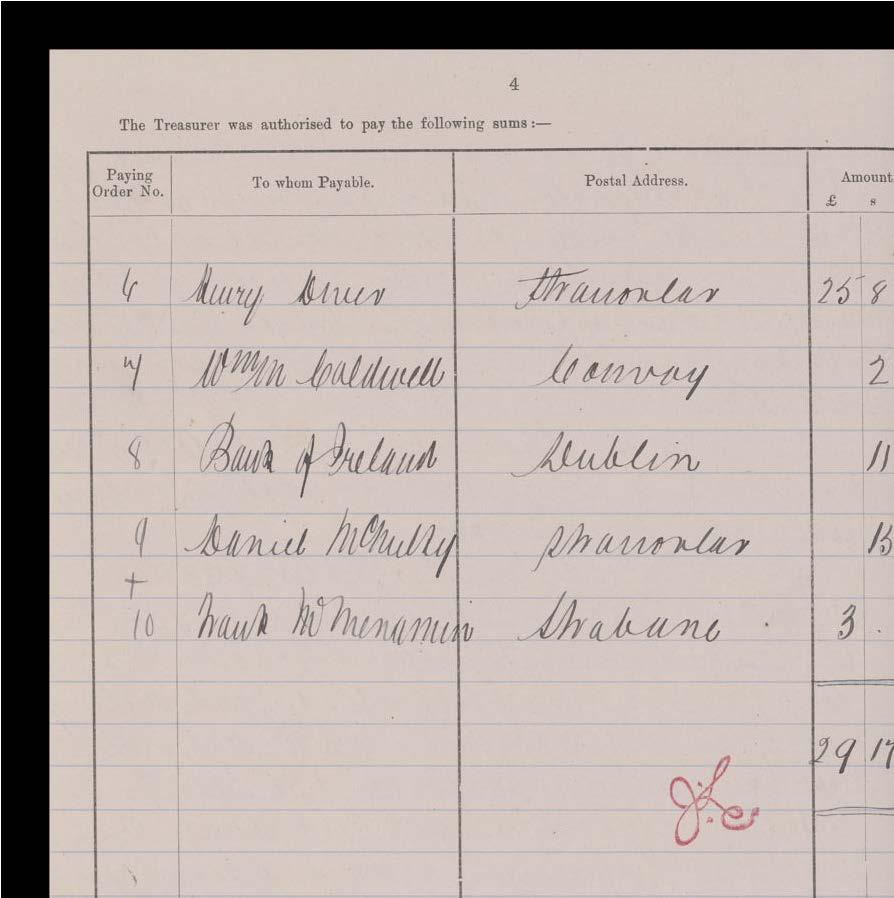 4
The Treasurer was authorised to pay the following sums :—
Paying Order No. To whom Payable. Postal Address. Amount
£ s
6 Henry Diver Stranorlar 25 8
7 Wm Caldwell Convoy 2
8 Bank of Ireland Dublin 11
9 Daniel McNulty Stranorlar 15
+
10 Frank McMenamin Strabane 3 .
29 17